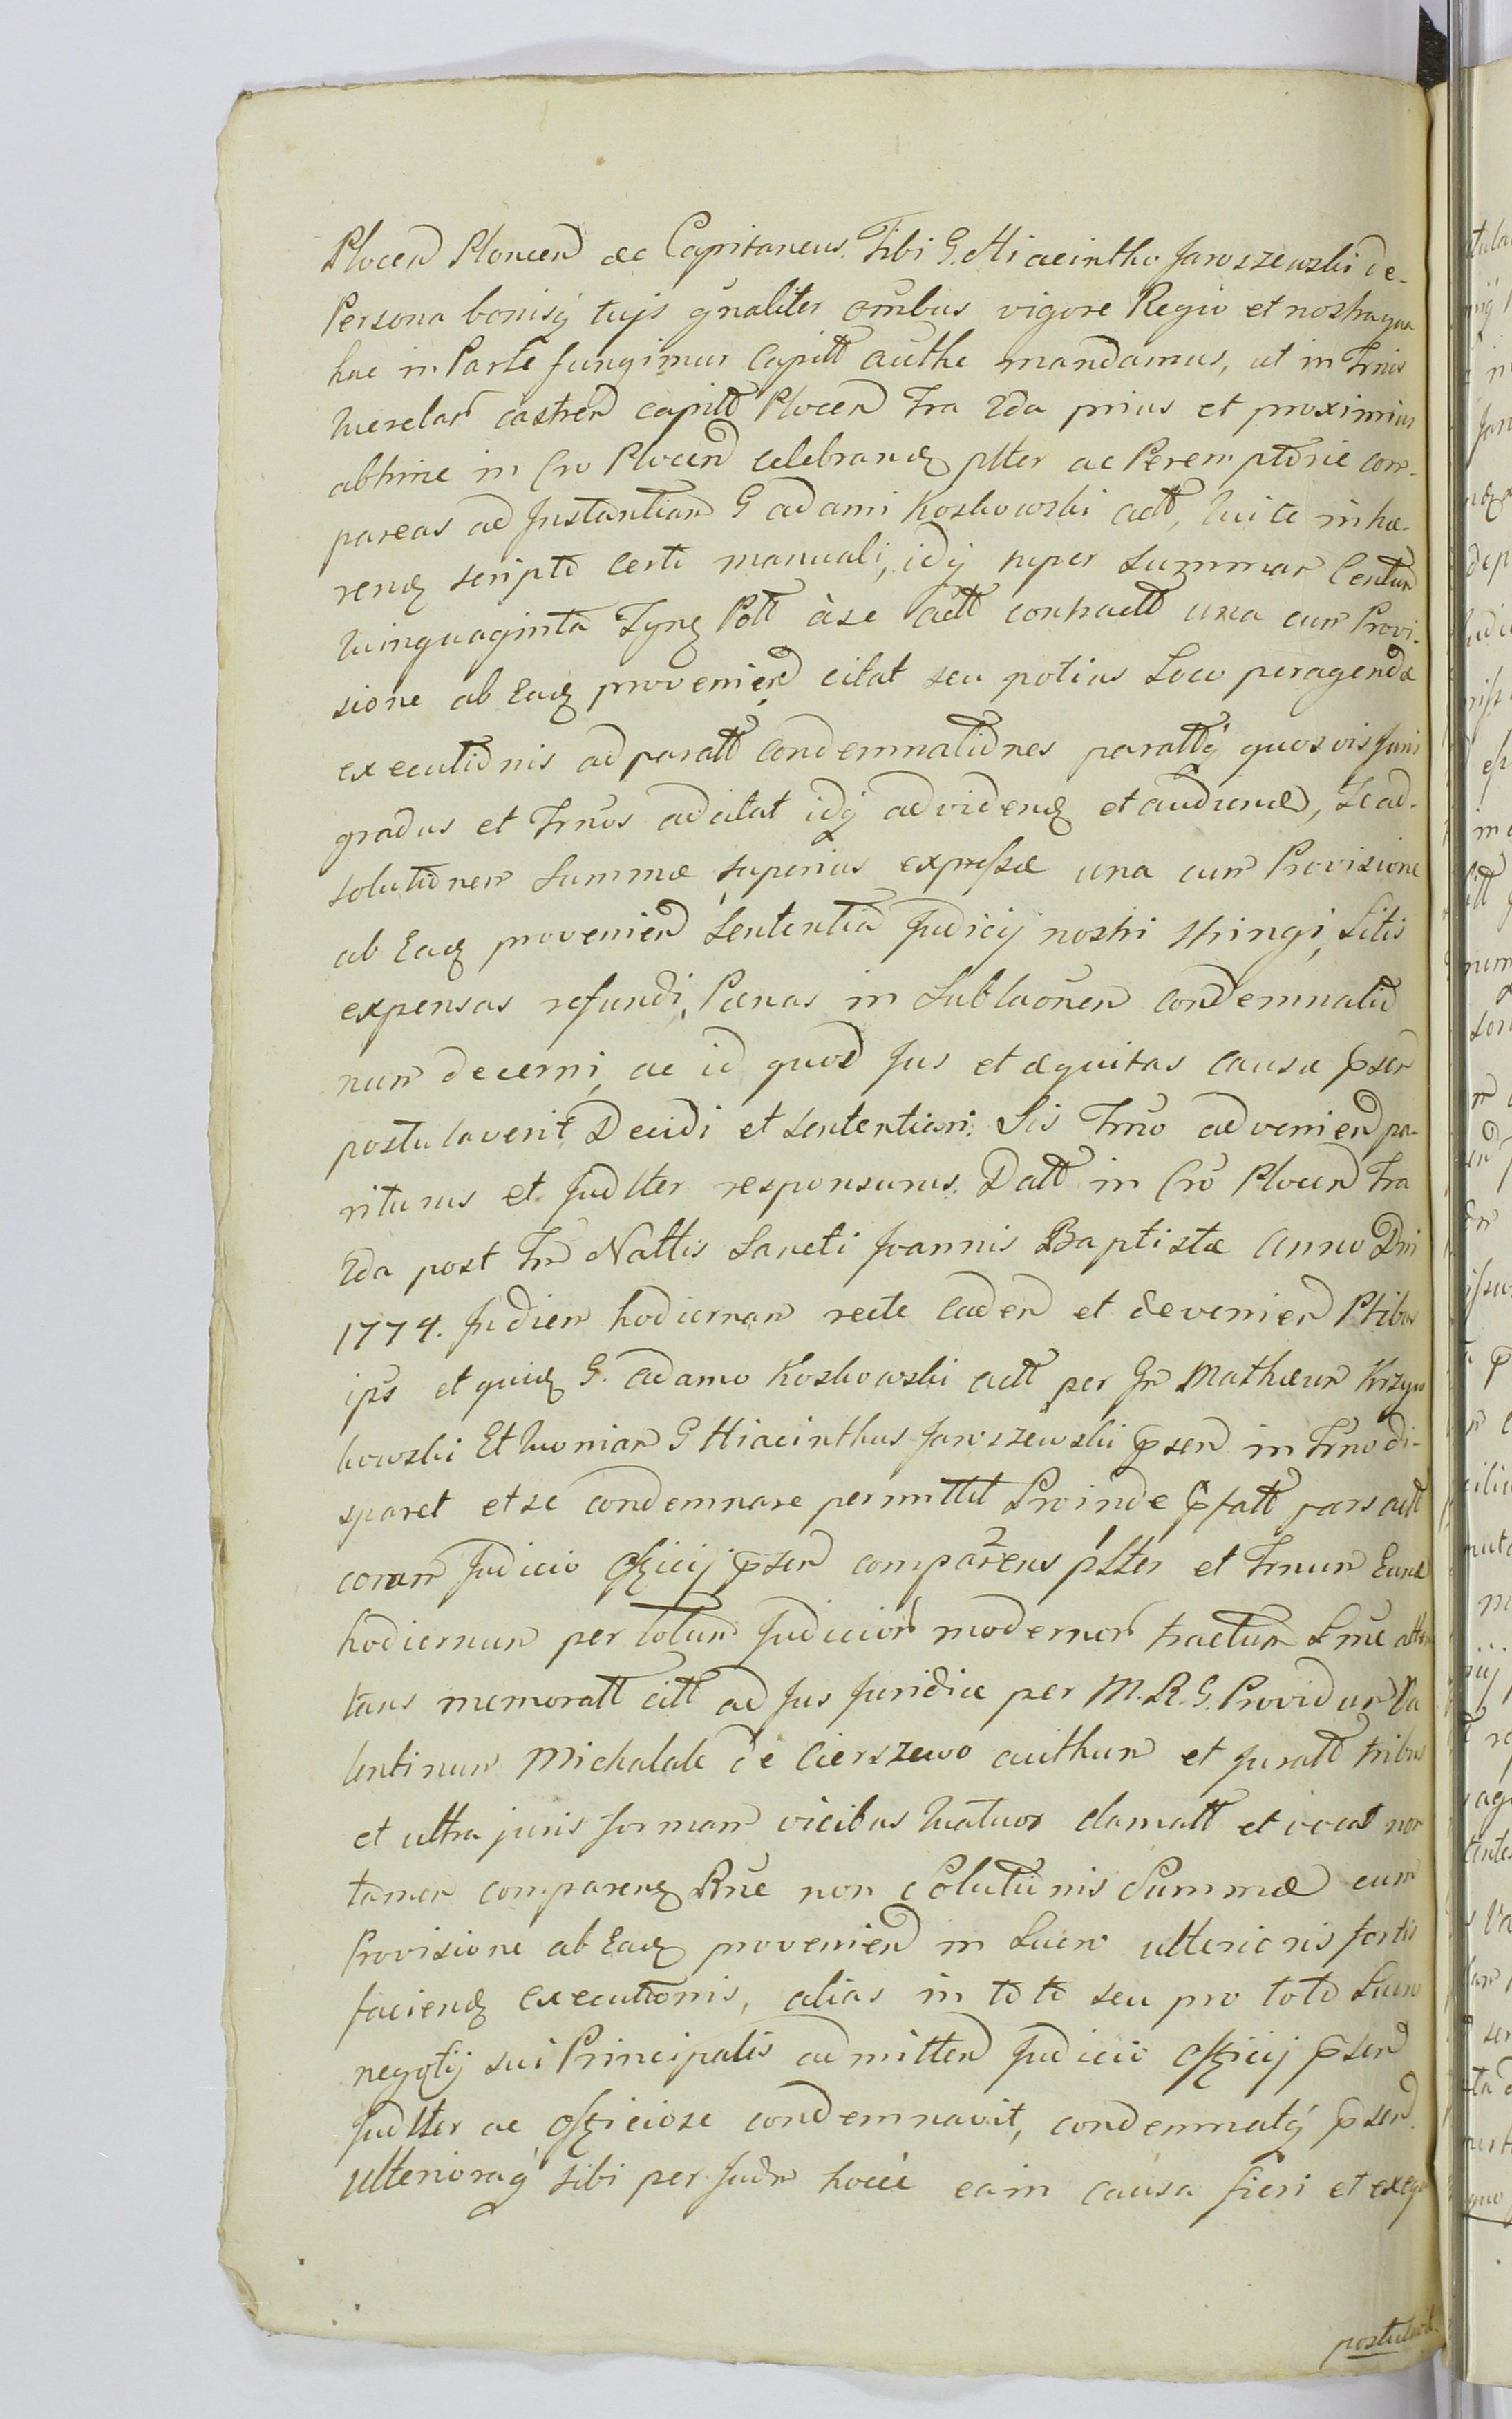 Plocen Ploncen &c Capitaneus. Tibi G. Hiacintho Jaroszewski de
Persona bonisq tujs gnaliter omibus vigore Regio et nostra qua
hac in Parte fungimur Capitt authe mandamus, ut in Trnis
Querelar castren capitt Plocen Fra 2da prius et proximius
abhinc in Cro Plocen celebrand pltter ac Peremptorie com-
pareas ad Instantiam G Adami Koskowski actt, Qui te inhæ-
rend scripto certi manuali, idq super Summam Centum
Quinquaginta Tynf Pott à se actt contractt una cum Provi-
sione ab Ead provenien citat seu potius Loco peragendæ
executionis ad paratt condemnationes parattq quosvis Juris
gradus et Trnos adcitat idq ad vidend et audiend, Te ad
solutionem Summæ superius expressæ una cum Provisione
ab Ead provenien Sententia Judicij nostri stringi, Litis
expensas refundi, Pænas in Sublaonem condemnatio
num decerni, ac id quod Jus et æquitas causæ pser
postulaverit Decidi et sententiari. Sis Trno advenien pa-
riturus et Judlter responsurus. Datt in Cro Plocen Fra
2da post Fm Nattis Sancti Joannis Baptistæ Anno Dni
1774. In diem hodiernam recte caden et devenien Ptibus
ips et quid G. Adamo Koskowski actt per Gn Mathæum Krzyw
kowski Et Quoniam G Hiacinthus Jaroszewski psen in Trno di-
sparet et se condemnare permittit Proinde pfatt pars actt
coram Judicio officij psen comparens pltter et Trnum Eund
hodiernum per totum Judicior modernor tractum Lme atten
tans memoratt citt ad Jus Juridice per M. R. G. Providum Va
lentinum Michalak de Cierszewo authum et Juratt tribus
et ultra juris formam vicibus Quatuor clamatt et vocat non
tamen comparend Rne non Solutionis Summæ cum
Provisione ab Ead provenien in Lucro ulterioris fortis
faciend executionis, alias in toto seu pro toto Lucro
negotij sui Principalis admitten Judicio officij psen
Judlter ac officiose condemnavit, condemnatq psen
ulterioraq sibi per Judm hocce ea in causa fieri et exequi
postulavit.